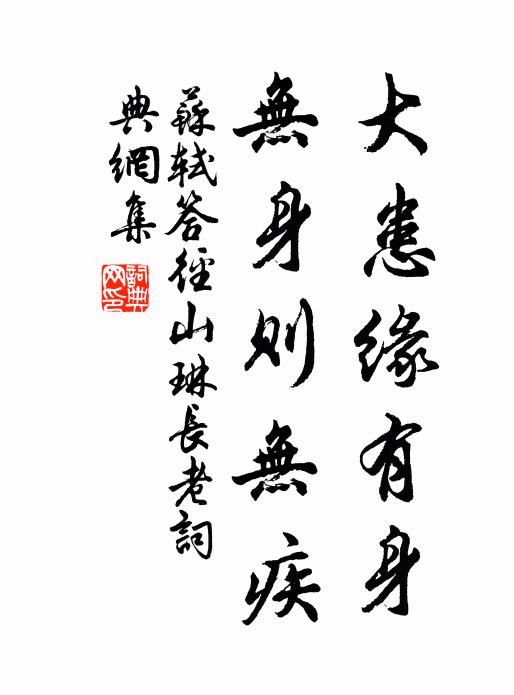 大患緣有身
無身則無疾
蘇軾答徑山琳長老詞
典網集
詞典
网印